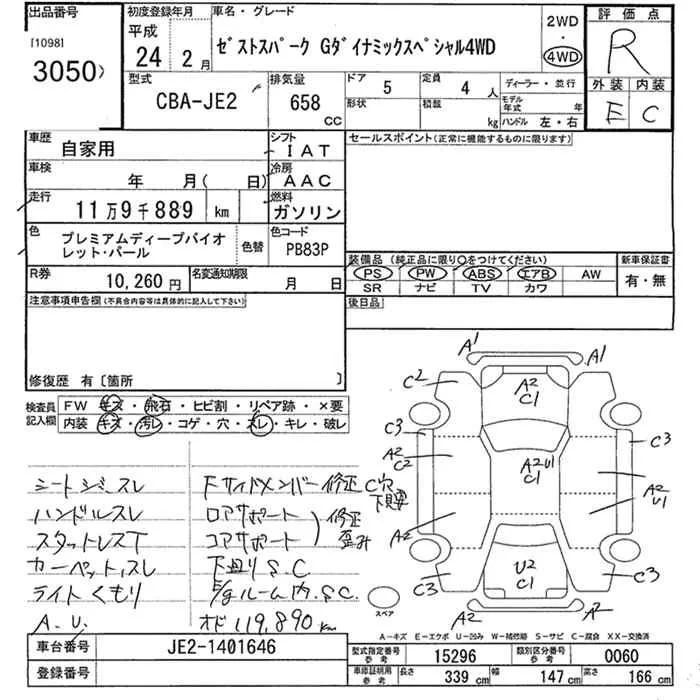 出品番号
[1098]
3050
初度登録年月
平成
24 2月
車名・グレード
ゼストスパーク Gダイナミックスペシャル4WD
2WD
・
4WD
評価点
R
外装 内装
E C
型式
CBA-JE2
排気量
658 CC
ドア
5
形状
定員
4 人
積載
kg
ディーラー・並行
モデル年式 年
ハンドル 左・右
車歴
自家用
シフト
IAT
車検
年 月( 日)
冷房
AAC
走行
11万9千889 km
燃料
ガソリン
色
プレミアムディープバイオレット・パール
色替
色コード
PB83P
R券
10,260円
名変通知期限
月 日
注意事項申告欄(不具合内容等は具体的に記入して下さい)
修復歴 有〔箇所 〕
セールスポイント(正常に機能するものに限ります)
装備品(純正品に限り○をつけてください)
PS PW ABS エアB AW
SR ナビ TV カワ
新車保証書
有・無
後日品
検査員記入欄
FW キズ・飛石・ヒビ割・リペア跡・×要
内装 キズ・汚レ・コゲ・穴・スレ・キレ・破レ
シートシミ、スレ
ハンドルスレ
スタットレスT
カーペット、スレ
ライトくもり
A.U.
Fサイドメンバー修正 C穴
下見要
ロアサポート
コアサポート
修正
歪み
下廻りS.C
E/gルーム内.S.C.
オド119,890km
A1
A1
C2
A2
C1
C3
C3
A2
C2
A2U1
C1
A2
U1
A2
U2
C1
C3
C3
A2
A2
スペア
A-キズ E-エクボ U-凹み W-補修跡 S-サビ C-腐食 XX-交換済
車台番号
JE2-1401646
登録番号
型式指定番号 参考
15296
類別区分番号 参考
0060
車庫証明用 参考
長さ 339 cm
幅 147 cm
高さ 166 cm